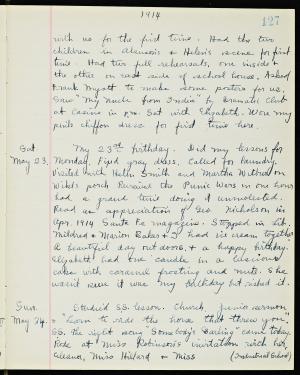 1914
127
with us for the first time. Had the two
children in Alanson's & Helen's scene for first
time. Had two full rehearsals, one inside &
the other on east side of school house. Asked
Frank Myatt to make some posters for us.
Saw "My Uncle from India" by Dramatic Club
at Casino in p.m. Sat with Elizabeth. Wore my
chiffon dress for first time here.
Sat.
May 23.
My 23rd birthday. Did my lessons for
Monday. Fixed gray dress. Called for laundry.
Visited with Helen Smith and Martha
porch. Reviewed the Punic Wars in one hour
had a grand time doing it unmolested.
Read an appreciation of Geo Nicholson in
Apr. 1914 Santa Fe magazine. Stopped in Lib.
Mildred & Marion Baker & I had ice cream together
A beautiful day outdoors, & a happy birthday.
Elizabeth had one candle in a luscious
cake with caramel frosting and nuts. She
wasn't sure it was my birthday but risked it.
Sun.
May 24.
Studied S.S. lesson. Church, sermon
"Learn to ride the horse that threw you".
S.S. the right song "Somebody's Darling" came today
Rode at Miss Robinson's invitation with her,
Eleanor, Miss Hillard & Miss
(Industrial School)